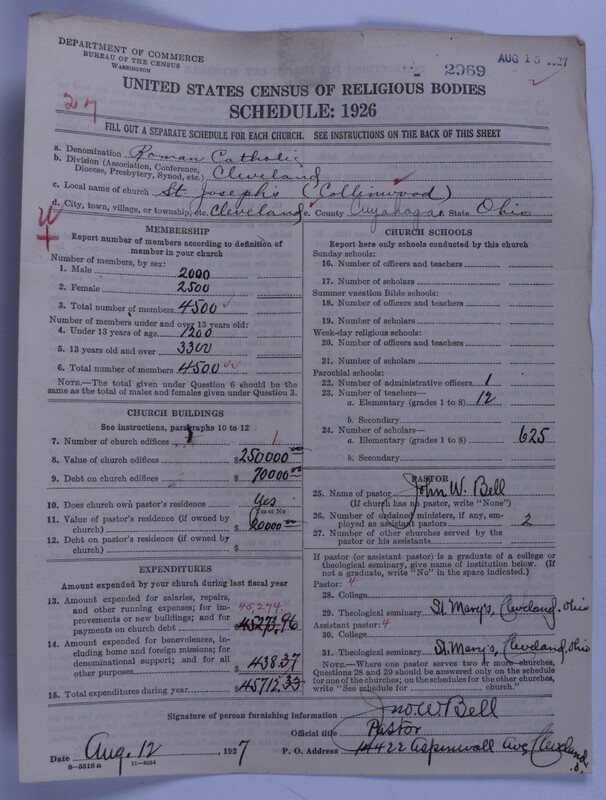 DEPARTMENT OF COMMERCE
BUREAU OF THE CENSUS
WASHINGTON
2969
AUG 15 1927
UNITED STATES CENSUS OF RELIGIOUS BODIES
SCHEDULE: 1926
27
FILL OUT A SEPARATE SCHEDULE FOR EACH CHURCH. SEE INSTRUCTIONS ON THE BACK OF THIS SHEET
a. Denomination Roman Catholic
b. Division (Association, Conference, Diocese, Presbytery, Synod, etc.) Cleveland
c. Local name of church St. Joseph's (Collinwood)
d. City, town, village, or township, etc. Cleveland e. County Cuyahoga f. State Ohio
MEMBERSHIP
Report number of members according to definition of
member in your church
Number of members, by sex:
1. Male 2000
2. Female 2500
3. Total number of members 4500
Number of members under and over 13 years old:
4. Under 13 years of age 1200
5. 13 years old and over 3300
6. Total number of members 4500
NOTE.—The total given under Question 6 should be the
same as the total of males and females given under Question 3.
CHURCH BUILDINGS
See instructions, paragraphs 10 to 12
7. Number of church edifices 1
8. Value of church edifices $250000.00
9. Debt on church edifices $70000.00
10. Does church own pastor's residence Yes
Yes or No
11. Value of pastor's residence (if owned by
church) $20000.00
12. Debt on pastor's residence (if owned by
church) $
EXPENDITURES
Amount expended by your church during last fiscal year
13. Amount expended for salaries, repairs,
and other running expenses; for im-
provements or new buildings; and for
payments on church debt 45,274. $45273.96
14. Amount expended for benevolences,
including home and foreign missions; for
denominational support; and for all
other purposes $438.37
15. Total expenditures during year $45712.33
CHURCH SCHOOLS
Report here only schools conducted by this church
Sunday schools:
16. Number of officers and teachers
17. Number of scholars
Summer vacation Bible schools:
18. Number of officers and teachers
19. Number of scholars
Week-day religious schools:
20. Number of officers and teachers
21. Number of scholars
Parochial schools:
22. Number of administrative officers 1
23. Number of teachers—
a. Elementary (grades 1 to 8) 12
b. Secondary
24. Number of scholars—
a. Elementary (grades 1 to 8) 625
b. Secondary
PASTOR
25. Name of pastor John W. Bell
(If church has no pastor, write "None")
26. Number of ordained ministers, if any, em-
ployed as assistant pastors 2
27. Number of other churches served by the
pastor or his assistants
If pastor (or assistant pastor) is a graduate of a college or
theological seminary, give name of institution below. (If
not a graduate, write "No" in the space indicated.)
Pastor: 4
28. College
29. Theological seminary St. Mary's, Cleveland, Ohio
Assistant pastor: 4
30. College
31. Theological seminary St. Mary's, Cleveland, Ohio
NOTE.—Where one pastor serves two or more churches,
Questions 28 and 29 should be answered only on the schedule
for one of the churches; on the schedules for the other churches,
write "See schedule for church."
Signature of person furnishing information Jno W Bell
Official title Pastor
Date Aug. 12 , 1927 P. O. Address 14422 Aspinwall Ave, Cleveland, O.
8—5518a 11—9034